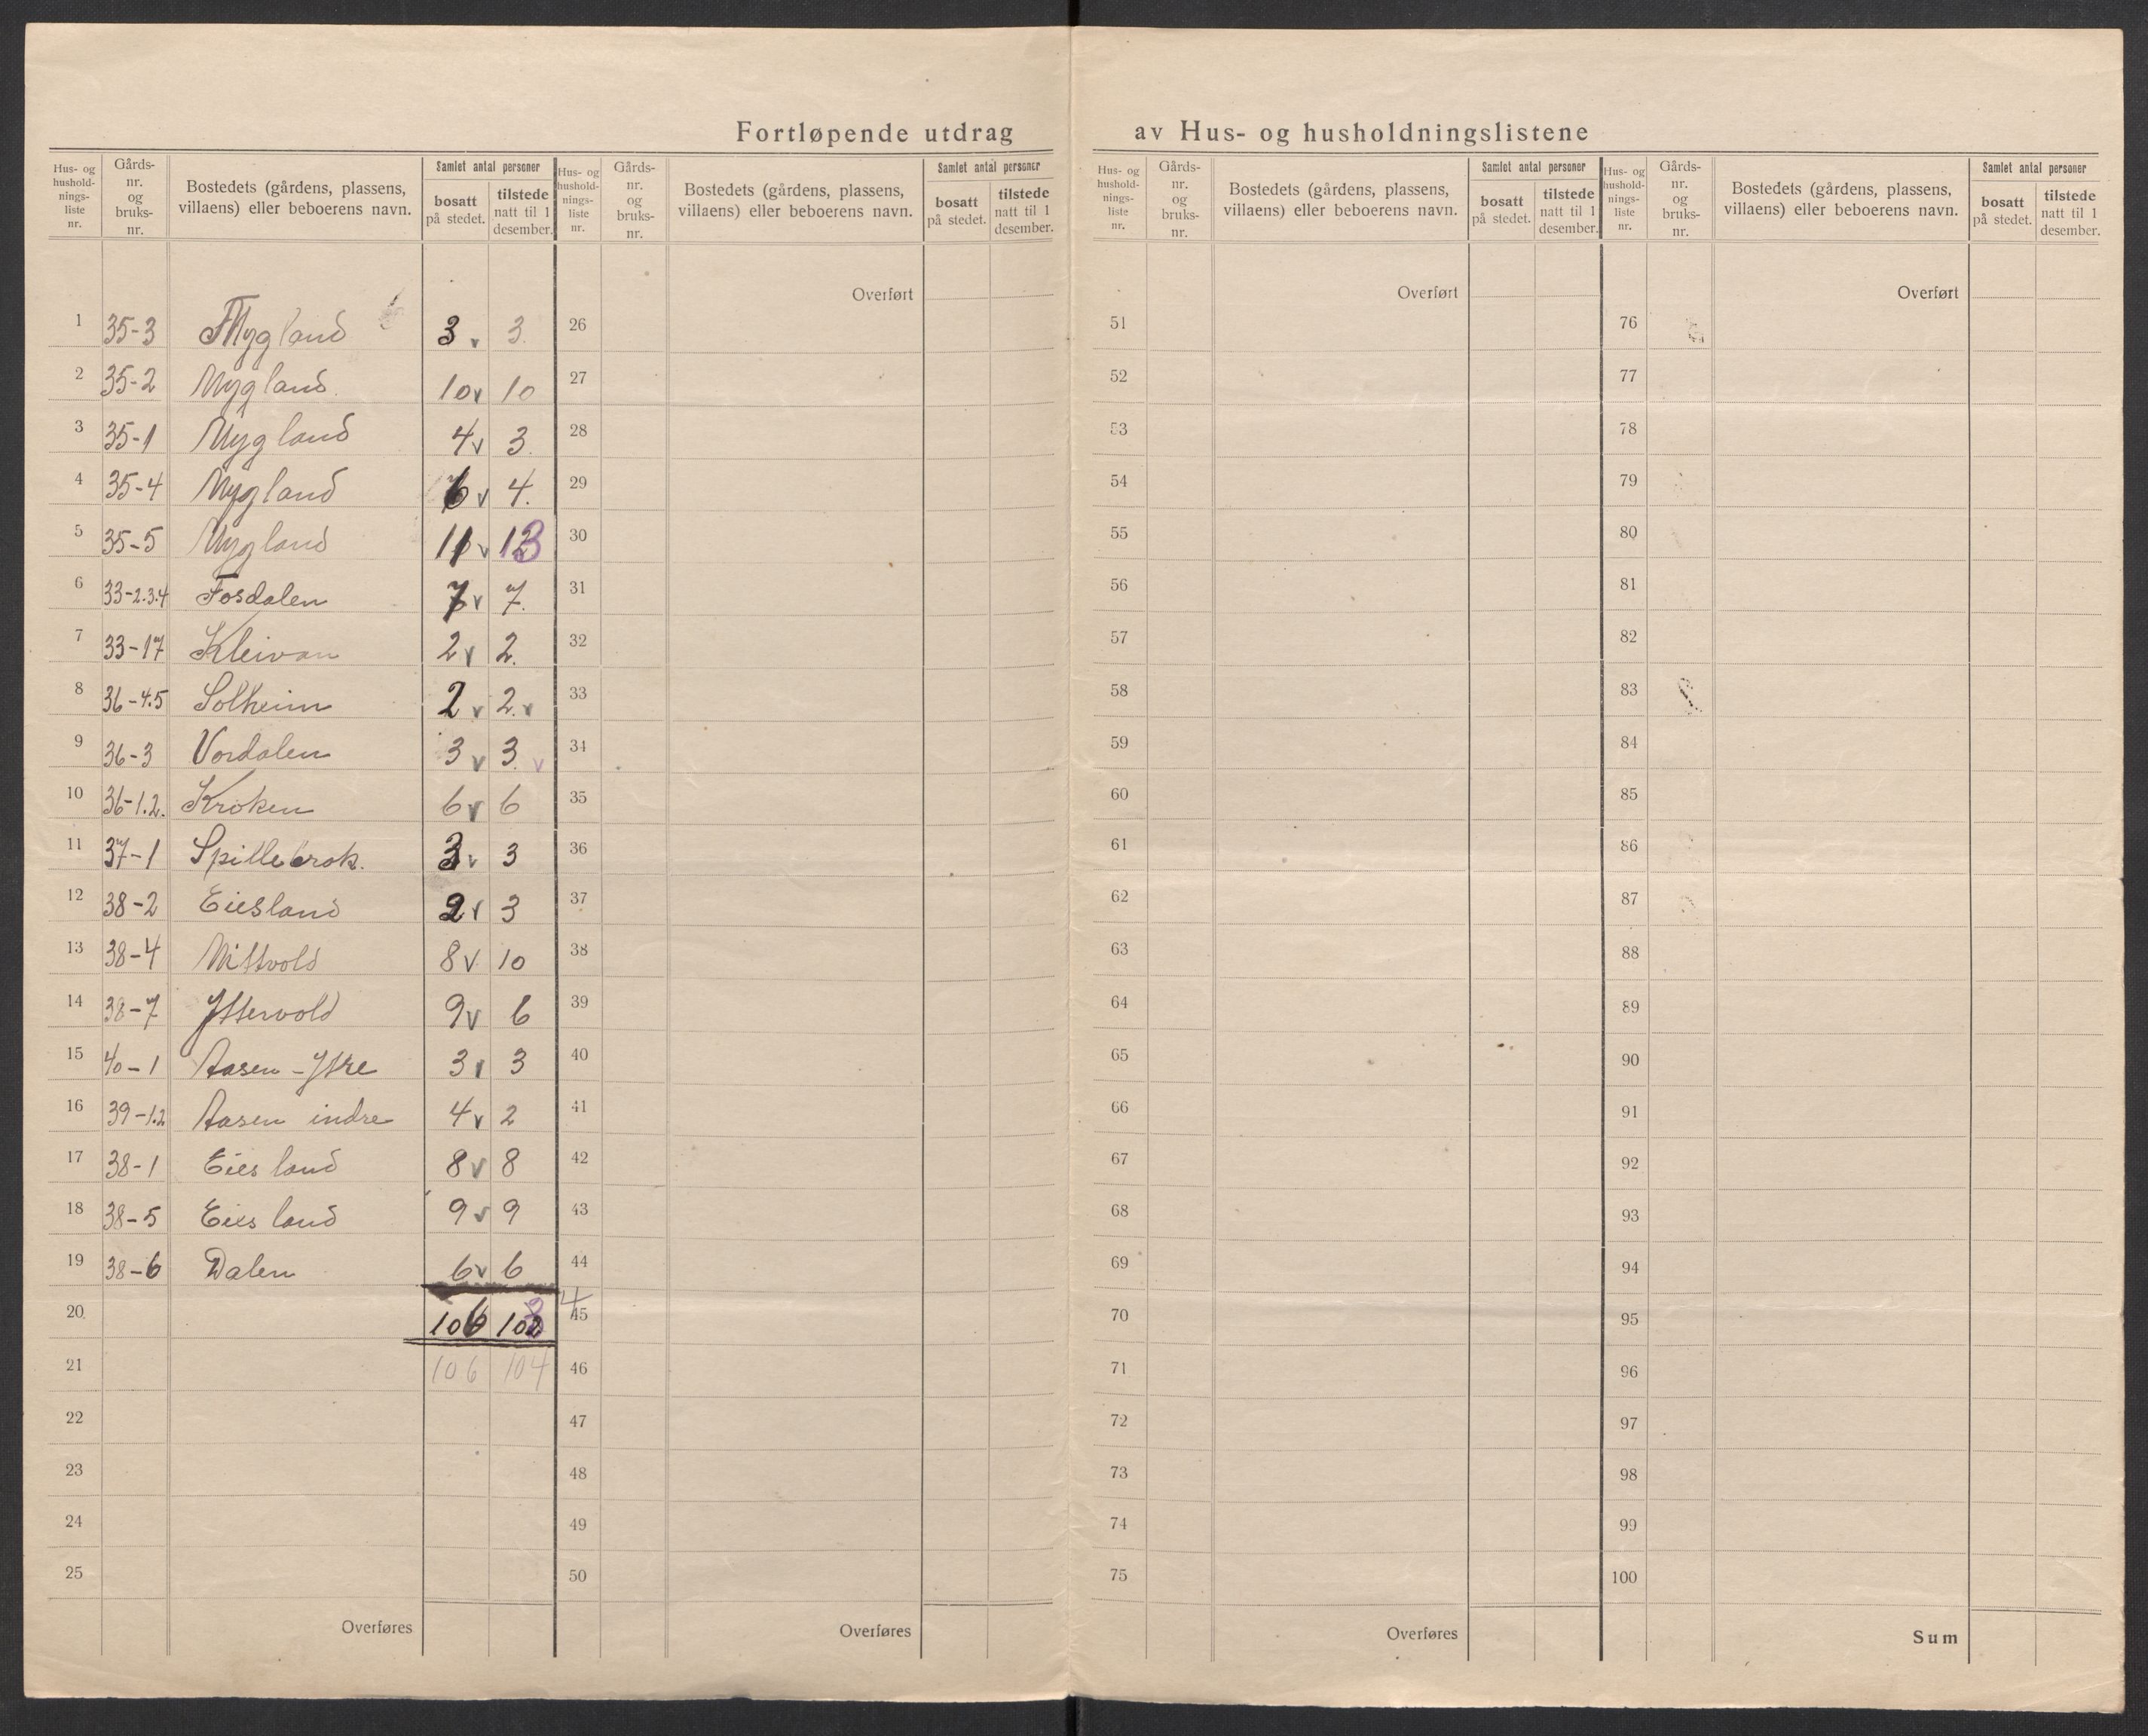 Fortløpende utdrag av Hus- og husholdningslistene
Hus- og hushold- nings- liste nr. | Gårds- nr. og bruks- nr. | Bostedets (gårdens, plassens, villaens) eller beboerens navn. | Samlet antal personer | bosatt på stedet. | tilstede natt til 1 desember.
1 35-3 Mygland 3 v 3.
2 35-2 Mygland. 10 v 10
3 35-1 Mygland 4 v 3.
4 35-4 Mygland 6 v 4.
5 35-5 Mygland 11 v 13
6 33-2.3.4 Fosdalen 7 v 7.
7 33-17 Kleivan 2 v 2.
8 36-4.5 Solheim 2 v 2. v
9 36-3 Vordalen 3 v 3. v
10 36-1.2. Kroken 6 v 6
11 37-1 Spillebrok. 3 v 3
12 38-2 Eiesland 2 v 3
13 38-4 Mittvold 8 v 10
14 38-7 Yttervold 9 v 6
15 40-1 Aasen - Ytre 3 v 3
16 39-1.2 Aasen indre 4 v 2
17 38-1 Eiesland 8 v 8
18 38-5 Eiesland 9 v 9
19 38-6 Dalen 6 v 6
20 106 103
21 106 104
22
23
24
25
Overføres
Hus- og hushold- nings- liste nr. | Gårds- nr. og bruks- nr. | Bostedets (gårdens, plassens, villaens) eller beboerens navn. | Samlet antal personer | bosatt på stedet. | tilstede natt til 1 desember.
Overført
26
27
28
29
30
31
32
33
34
35
36
37
38
39
40
41
42
43
44
4
45
46
47
48
49
50
Overføres
Hus- og hushold- nings- liste nr. | Gårds- nr. og bruks- nr. | Bostedets (gårdens, plassens, villaens) eller beboerens navn. | Samlet antal personer | bosatt på stedet. | tilstede natt til 1 desember.
Overført
51
52
53
54
55
56
57
58
59
60
61
62
63
64
65
66
67
68
69
70
71
72
73
74
75
Overføres
Hus- og hushold- nings- liste nr. | Gårds- nr. og bruks- nr. | Bostedets (gårdens, plassens, villaens) eller beboerens navn. | Samlet antal personer | bosatt på stedet. | tilstede natt til 1 desember.
Overført
76
77
78
79
80
81
82
83
84
85
86
87
88
89
90
91
92
93
94
95
96
97
98
99
100
Sum